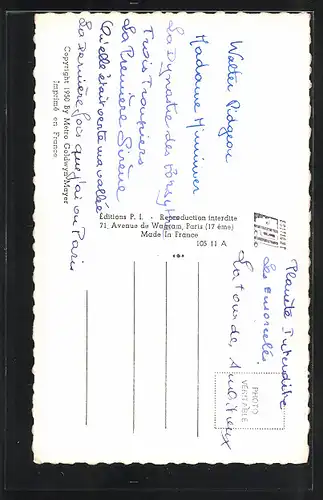 Walter Pidgeon
Madame Miniver
La Dynastie des Forsyte
Trois Troupiers
La Première Sirène
Qu'elle était verte ma vallée
La Dernière fois que j'ai vu Paris
Copyright 1950 By Metro Goldwyn-Mayer
Imprimé en France
Éditions P. I. - Reproduction interdite
71, Avenue de Wagram, Paris (17 ème)
Made in France
105 11 A
Planète Interdite
Les ensorcelés
La Tour des Ambitieux
PHOTO
VÉRITABLE